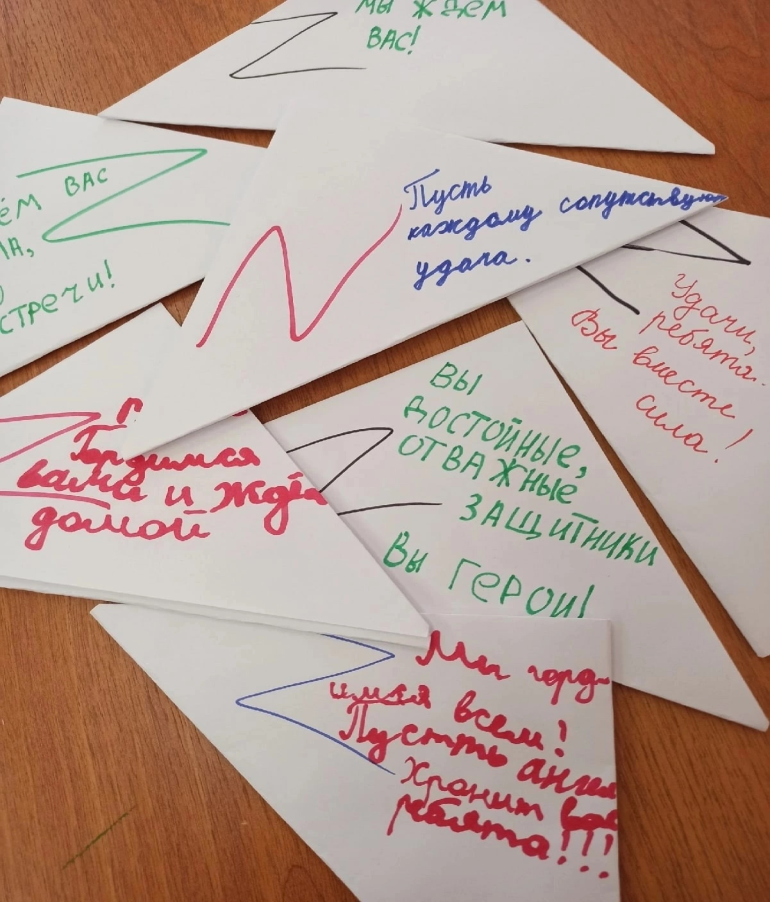 МЫ ЖДЕМ
ВАС!
ВАС
СТРЕЧИ!
Пусть
каждому сопутствует
удача.
Удачи,
ребята.
Вы вместе
сила!
Гордимся
вами и ждём
домой
ВЫ
ДОСТОЙНЫЕ,
ОТВАЖНЫЕ
ЗАЩИТНИКИ
ВЫ ГЕРОИ!
Мы горд-
имся всем!
Пустть ангел
хранит вас
ребята!!!